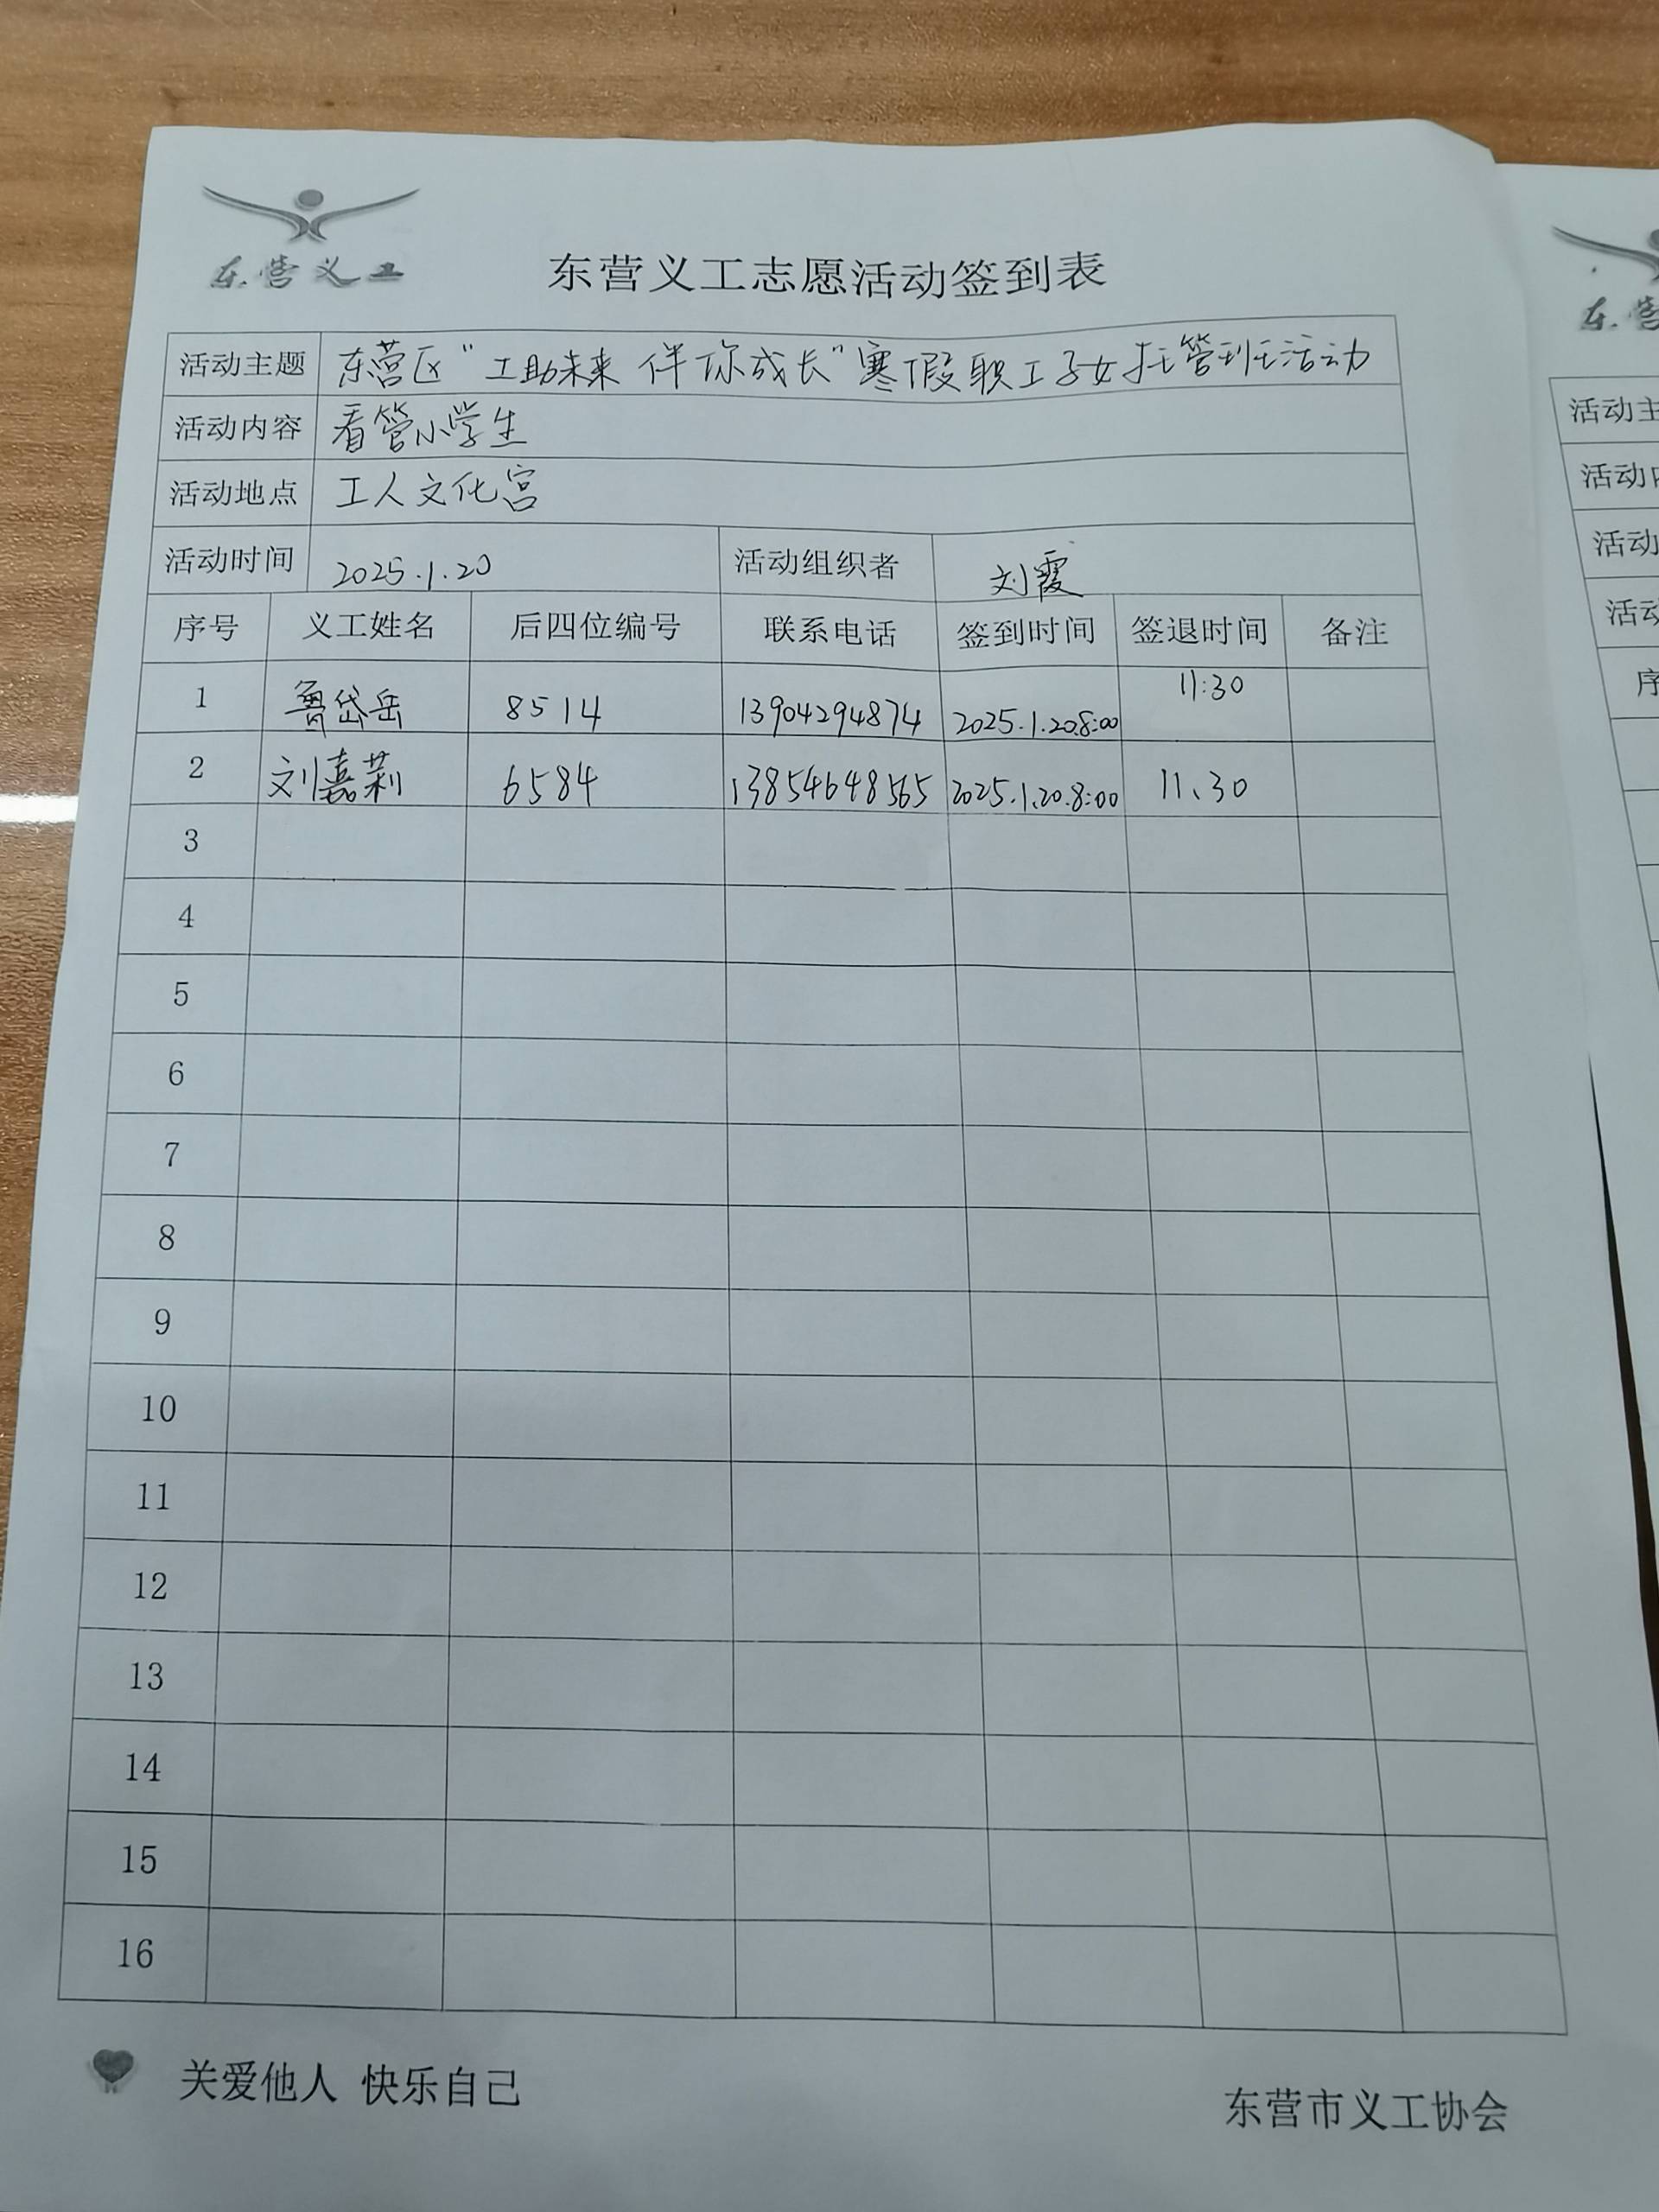 东营义工
东营义工志愿活动签到表
活动主题 东营区"工助未来 伴你成长"寒假职工子女托管班活动
活动内容 看管小学生
活动地点 工人文化宫
活动时间 2025.1.20 活动组织者 刘霞
序号 义工姓名 后四位编号 联系电话 签到时间 签退时间 备注
1 鲁岱岳 8514 13904294874 2025.1.20.8:00 11:30
2 刘嘉莉 6584 13854648565 2025.1.20.8:00 11、30
3
4
5
6
7
8
9
10
11
12
13
14
15
16
关爱他人 快乐自己
东营市义工协会
东.营
活动主
活动内
活动
活动
序